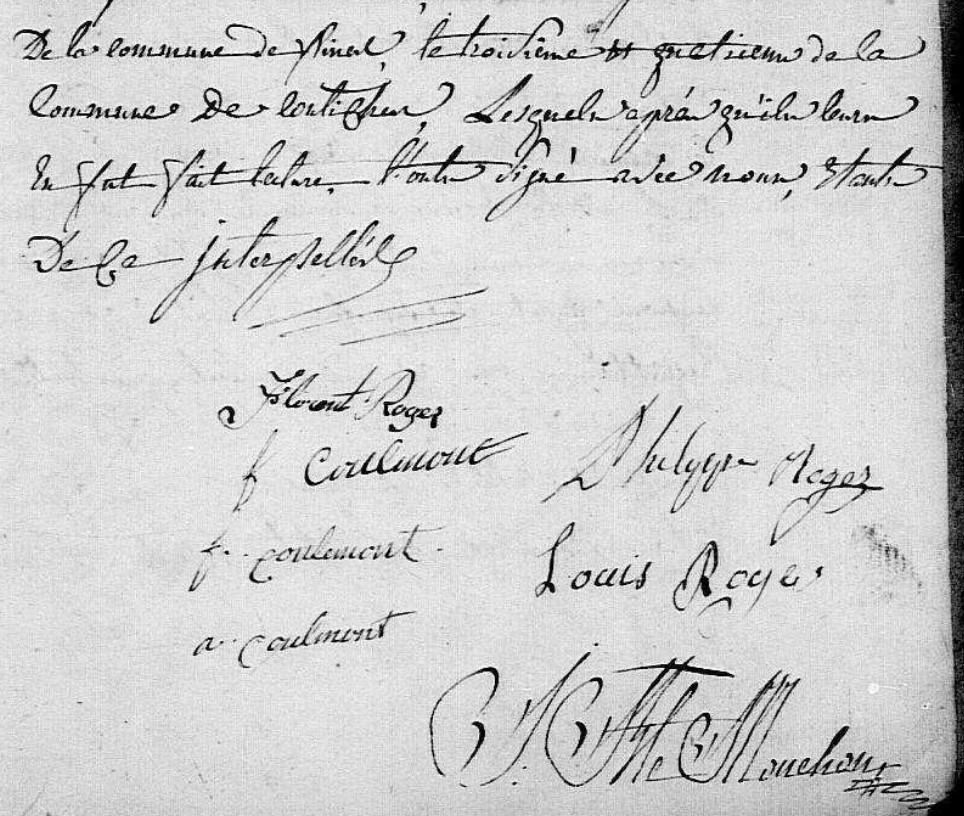 De la commune de finet, le troisième et quatrieme de la
Commune De Contichen, Lesquels aprés qu'ils leurs
En fut fait lecture, l'onts signé avec nous, Etants
De Ce interpellés
Florent Roger
f Coulmont
Philippe Roger
f. coulemont
Louis Roger
a coulmont
Mouchon